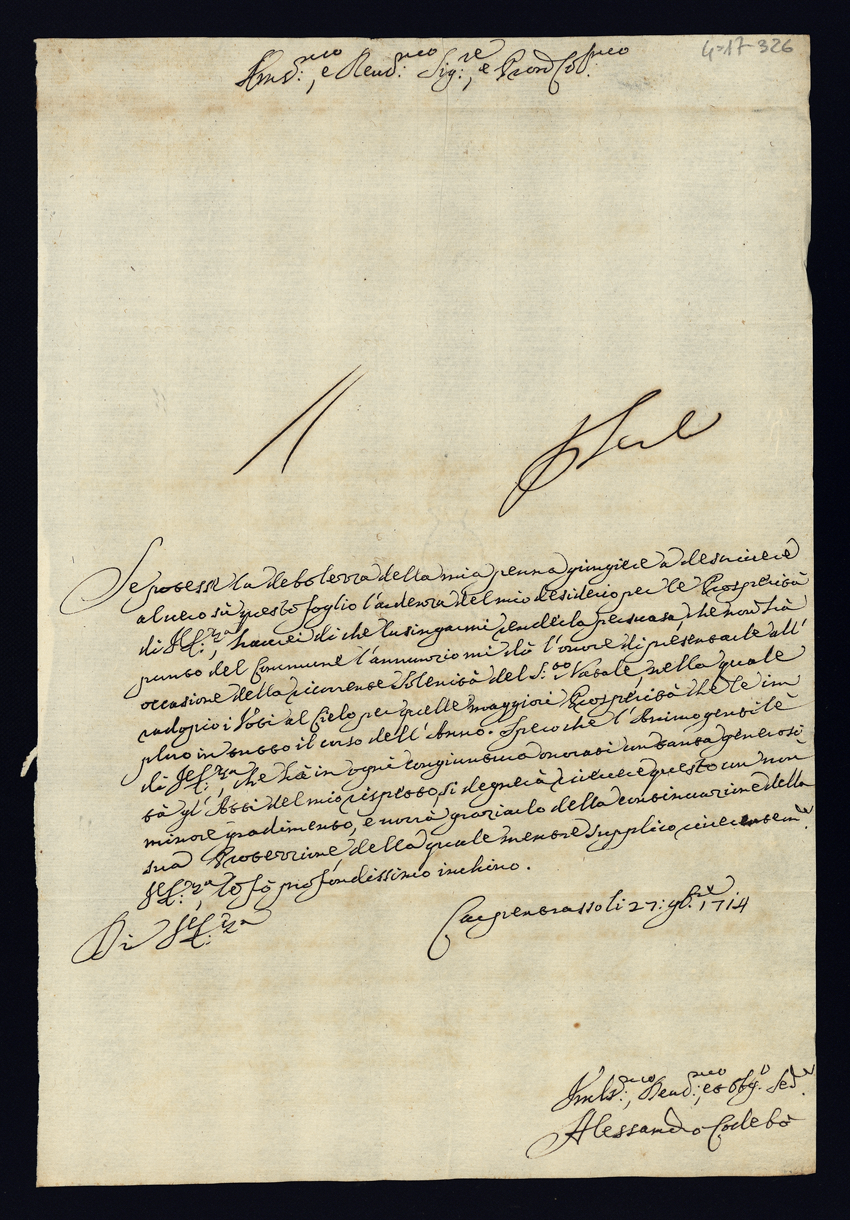 4-17-326
Ill.mo, e Rev.mo Sig.re, e Pron Col.mo
Se potesse la debolezza della mia penna giungere a descrivere
al vero sù questo foglio l'ardenza del mio desiderio per le Prosperità
di V.E. Ill.ma, haurei di che lusingarmi renderla persuasa, che non hà
punto del Commune l'annunzio mi dà l'onore di presentarle all'
occasione della ricorrente Solenità del S.to Natale, nella quale
radopio i Voti al Cielo per quelle maggiori Prosperità che le im
ploro in tutto il corso dell'Anno. Spero che l'Animo gentile
di , che hà in ogni congiuntura onorati con tanta generosi
tà gl'Atti del mio rispetto, si degnerà ricevere questo con non
minore gradimento, e vorrà graziarlo della continuazione della
sua Protezzione, della quale mentre supplico
, le fò profondissimo inchino.
Di
Carpentrasso li 27: 9bre 1714
, et Obg.o Ser.re
Alessandro Codebò